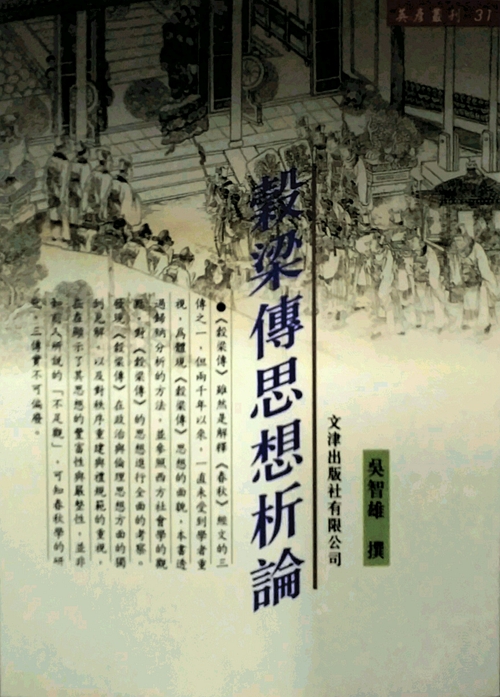 英彥叢刊 31
吳智雄 撰
文津出版社有限公司
穀梁傳思想析論
●《穀梁傳》雖然是解釋《春秋》經文的三
傳之一，但兩千年以來，一直未受到學者重
視，為體現《穀梁傳》思想的面貌，本書透
過歸納分析的方法，並參照西方社會學的觀
點，對《穀梁傳》的思想進行全面的考察。
發現《穀梁傳》在政治與倫理思想方面的獨
到見解，以及對秩序重建與禮規範的重視，
在在顯示了其思想的豐富性與嚴整性，並非
如前人所說的「不足觀」，可知春秋學的研
究，三傳實不可偏廢。